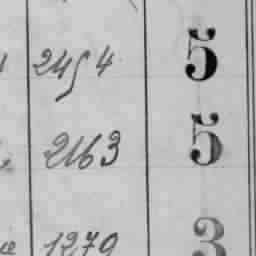 2454 5
2163 5
1279 3